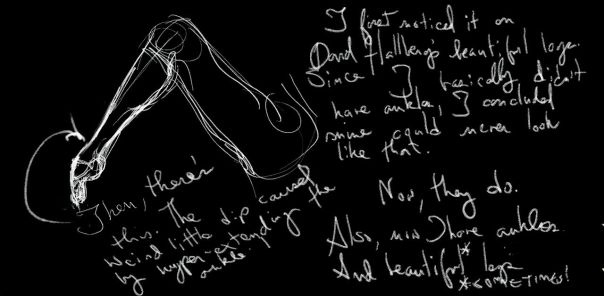 I first noticed it on
David Hallberg's beautiful legs.
Since I basically didn't
have ankles, I concluded
mine could never look
like that.
Now, they do.
Also, now I have ankles.
And beautiful* legs
*SOMETIMES!
Then, there's
this. The dip caused
weird little
by hyper-extending the
ankle.